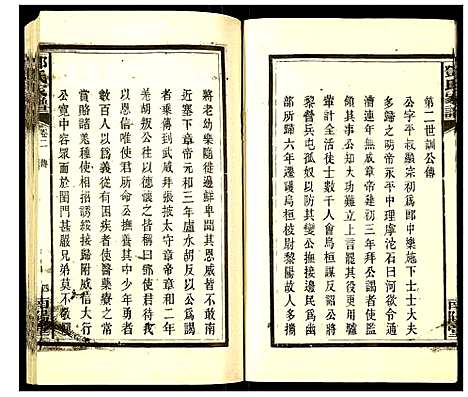 鄧氏家譜
第二世訓公傳
公字平叔顯宗初爲郎中樂施下士士大夫
多歸之明帝永平中理摩沱石臼河欲令通
漕連年無成章帝建初三年拜公謁者使監
領其事公知大功難立具以上言詔從之省
費計全活徒士數千人會烏桓謀反詔公將
黎營兵屯孤奴以防其變公撫接邊民爲幽
部所歸六年遷護烏桓校尉黎陽故人多攜
將老幼樂隨徙邊鮮卑聞其恩威皆不敢南
近塞下章帝元和三年盧水胡反以公爲謁
者乘傳到武威拜張掖太守章帝章和二年
羌胡叛公往以德懷之皆稱曰鄧使君待我
以恩信唯使君所命公撫養其中少年勇者
數百人以爲義從有困疾者使醫藥療之
賞賂諸羌種使相招誘綏接歸附威信大行
公寬中容眾而於閨門甚嚴兄弟莫不敬憚
鄧氏家譜
卷二
傳
南陽堂